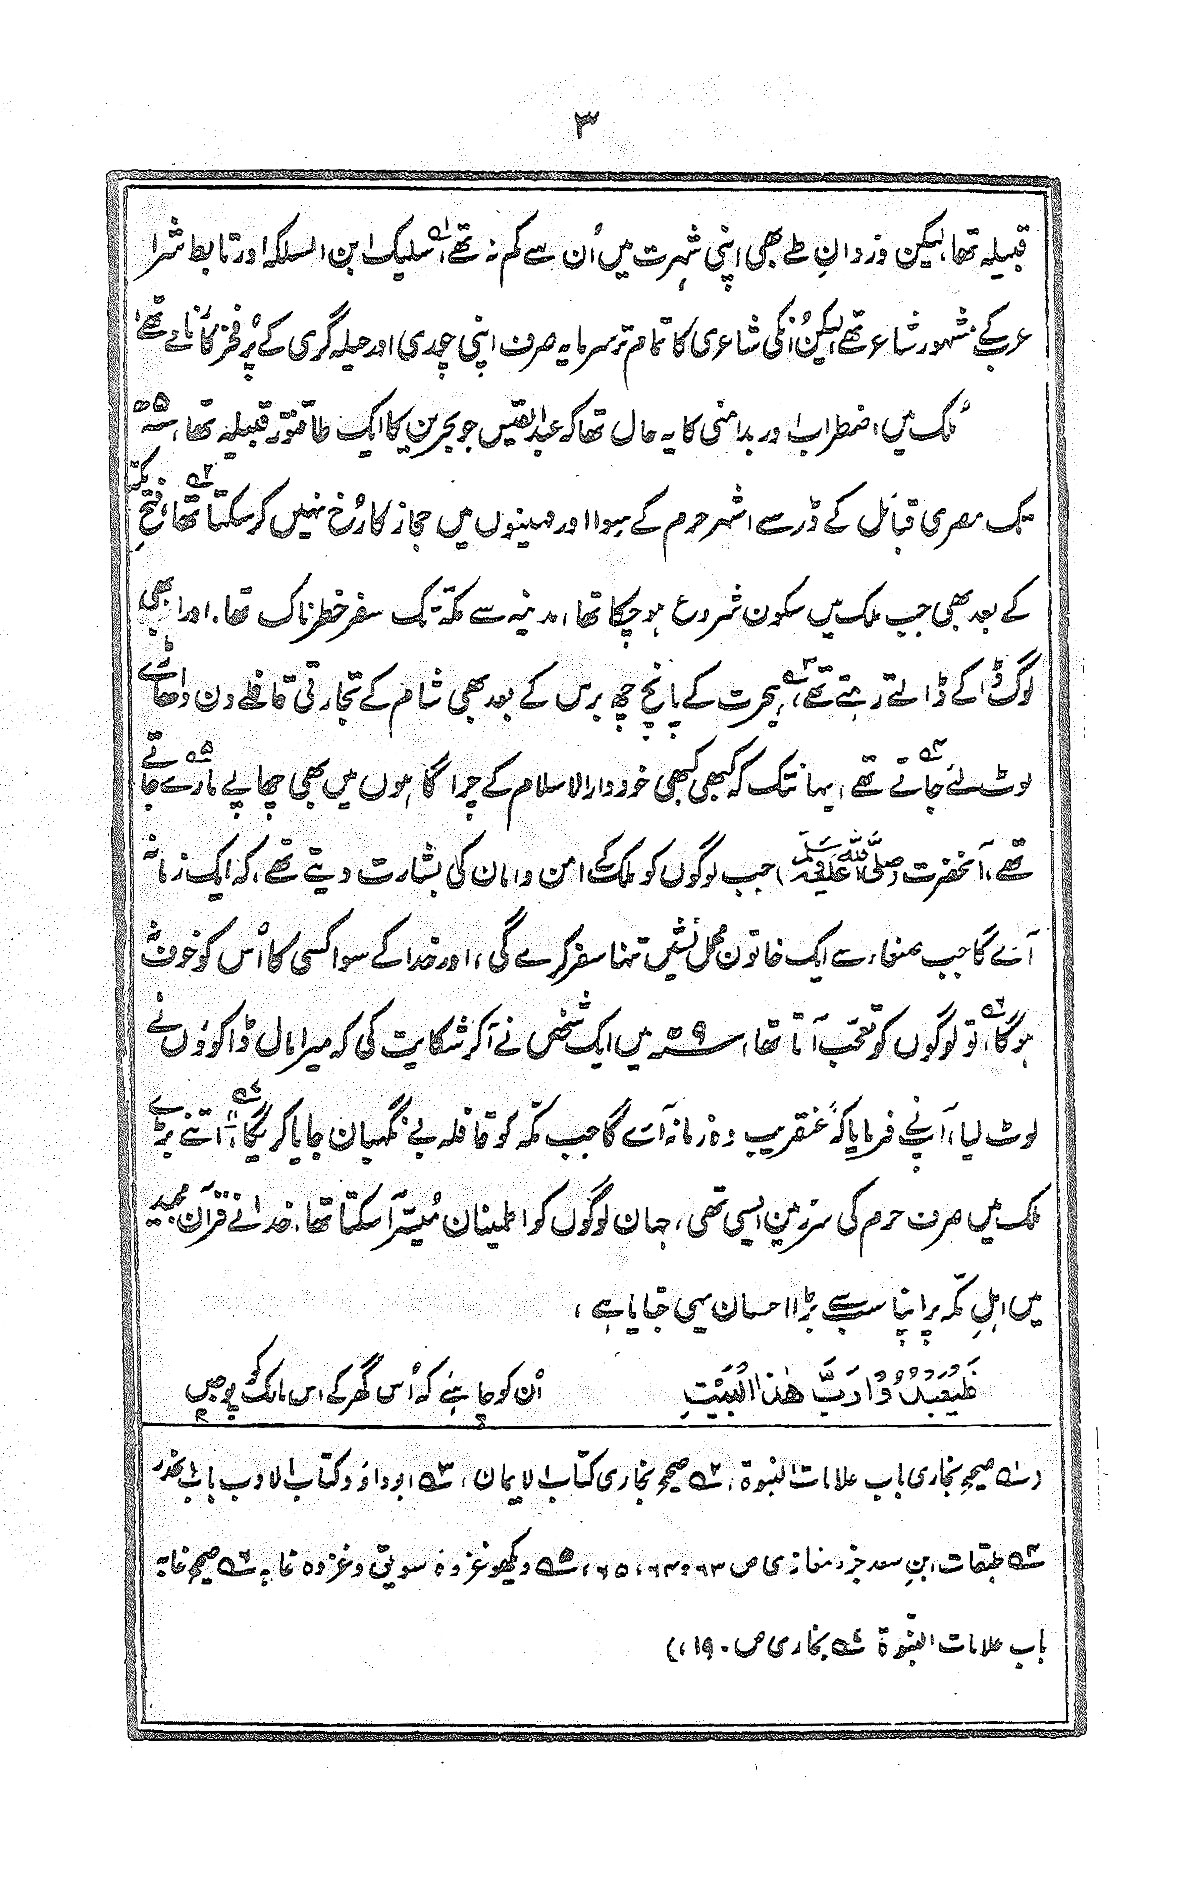 ۳
قبیلہ تھا، لیکن دزدانِ طے بھی اپنی شہرت میں اُن سے کم نہ تھے، سلیک ابن السلکہ اور تابط شرا
عرب کے مشہور شاعر تھے لیکن اُنکی شاعری کا تمام تر سرمایہ صرف اپنی چوری اور حیلہ گری کے پُر فخر کارنامے تھے،
مُلک میں اضطراب اور بدامنی کا یہ حال تھا کہ عبدالقیس جو بحرین کا ایک طاقتور قبیلہ تھا، ۵ھ
تک مضری قبائل کے ڈر سے اشہر حرم کے سوا اور مہینوں میں حجاز کا رُخ نہیں کر سکتا تھا، فتح مکہ
کے بعد بھی جب ملک میں سکون شروع ہو چکا تھا، مدینہ سے مکہ تک سفر خطرناک تھا، اور ابھی
لوگ ڈاکے ڈالتے رہتے تھے، ہجرت کے پانچ چھ برس کے بعد بھی شام کے تجارتی قافلے دن دہاڑے
لوٹ لئے جاتے تھے، یہانتک کہ کبھی کبھی خود دارالاسلام کے چراگاہوں میں بھی چھاپے مارے جاتے
تھے، آنحضرت (صلی اللہ علیہ وسلم) جب لوگوں کو ملک کے امن و امان کی بشارت دیتے تھے، کہ ایک زمانہ
آئے گا جب صنعاء سے ایک خاتون محمل نشیں تنہا سفر کرے گی، اور خدا کے سوا کسی کا اُس کو خوف نہ
ہوگا، تو لوگوں کو تعجب آتا تھا، ۹ھ میں ایک شخص نے آکر شکایت کی کہ میرا مال ڈاکوؤں نے
لوٹ لیا، آپنے فرمایا کہ "عنقریب وہ زمانہ آئے گا جب مکّہ کو قافلہ بے نگہبان جایا کریگا،" اتنے بڑے
ملک میں صرف حرم کی سرزمین ایسی تھی، جہان لوگوں کو اطمینان مُیسّر آسکتا تھا، خدا نے قرآن مجید
میں اہلِ مکّہ پر اپنا سب سے بڑا احسان یہی جتایا ہے،
فَلْيَعْبُدُوْا رَبَّ هٰذَا الْبَيْتِ اُن کو چاہئے کہ اُس گھر کے اس مالک کو پوجیں
(۱؎ صحیح بخاری باب علامات النبوۃ، ۲؎ صحیح بخاری کتاب الایمان، ۳؎ ابوداؤد کتاب الادب باب الحذر
۴؎ طبقات ابن سعد جزء مغازی ص ۶۳ و ۶۴، ۶۵، ۵؎ دیکھو غزوہ سویق و غزوہ غابہ ۶؎ صحیح
باب علامات النبوۃ ۷؎ بخاری ص ۱۹۰،)